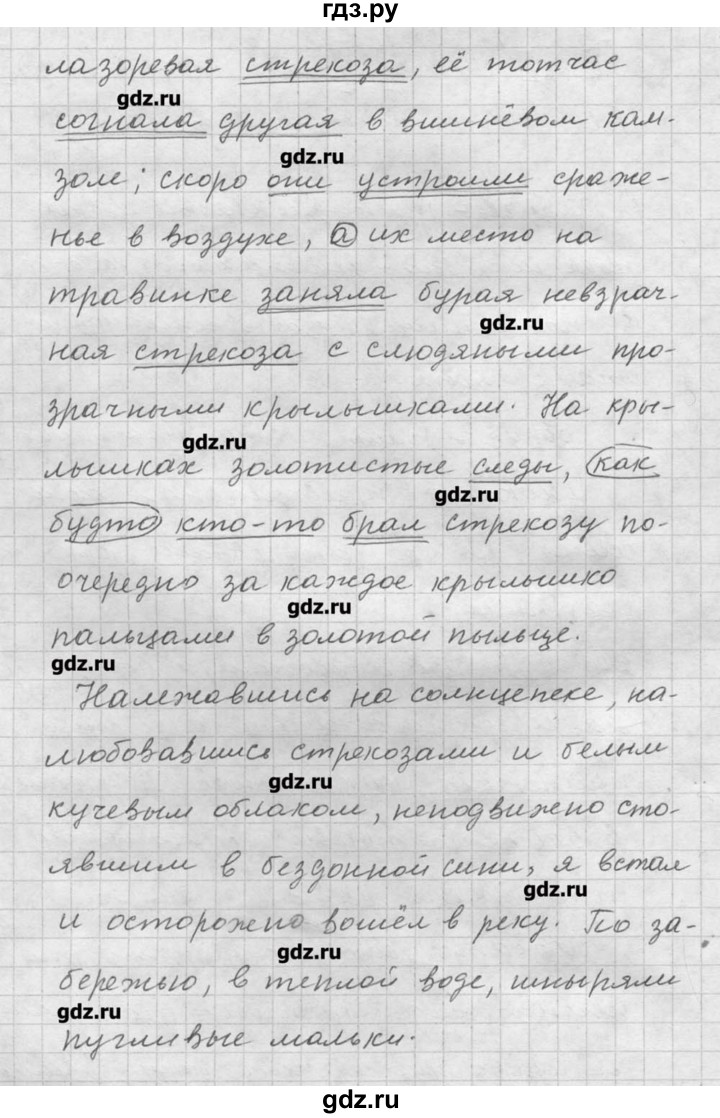 гдз.ру
лазоревая стрекоза, её тотчас
gdz.ru
согнала другая в вишнёвом кам-
gdz.ru
золе; скоро они устроили сраже-
нье в воздухе, а их место на
травинке заняла бурая невзрач-
gdz.ru
ная стрекоза с слюдяными про-
зрачными крылышками. На кры-
gdz.ru
лышках золотистые следы, как
gdz.ru
будто кто-то брал стрекозу по-
очередно за каждое крылышко
gdz.ru
пальцами в золотой пыльце.
gdz.ru
Належавшись на солнцепеке, на-
любовавшись стрекозами и белым
gdz.ru
кучевым облаком, неподвижно сто-
явшим в бездонной сини, я встал
gdz.ru
и осторожно вошёл в реку. По за-
gdz.ru
бережью, в теплой воде, шныряли
gdz.ru
пугливые мальки.
gdz.ru